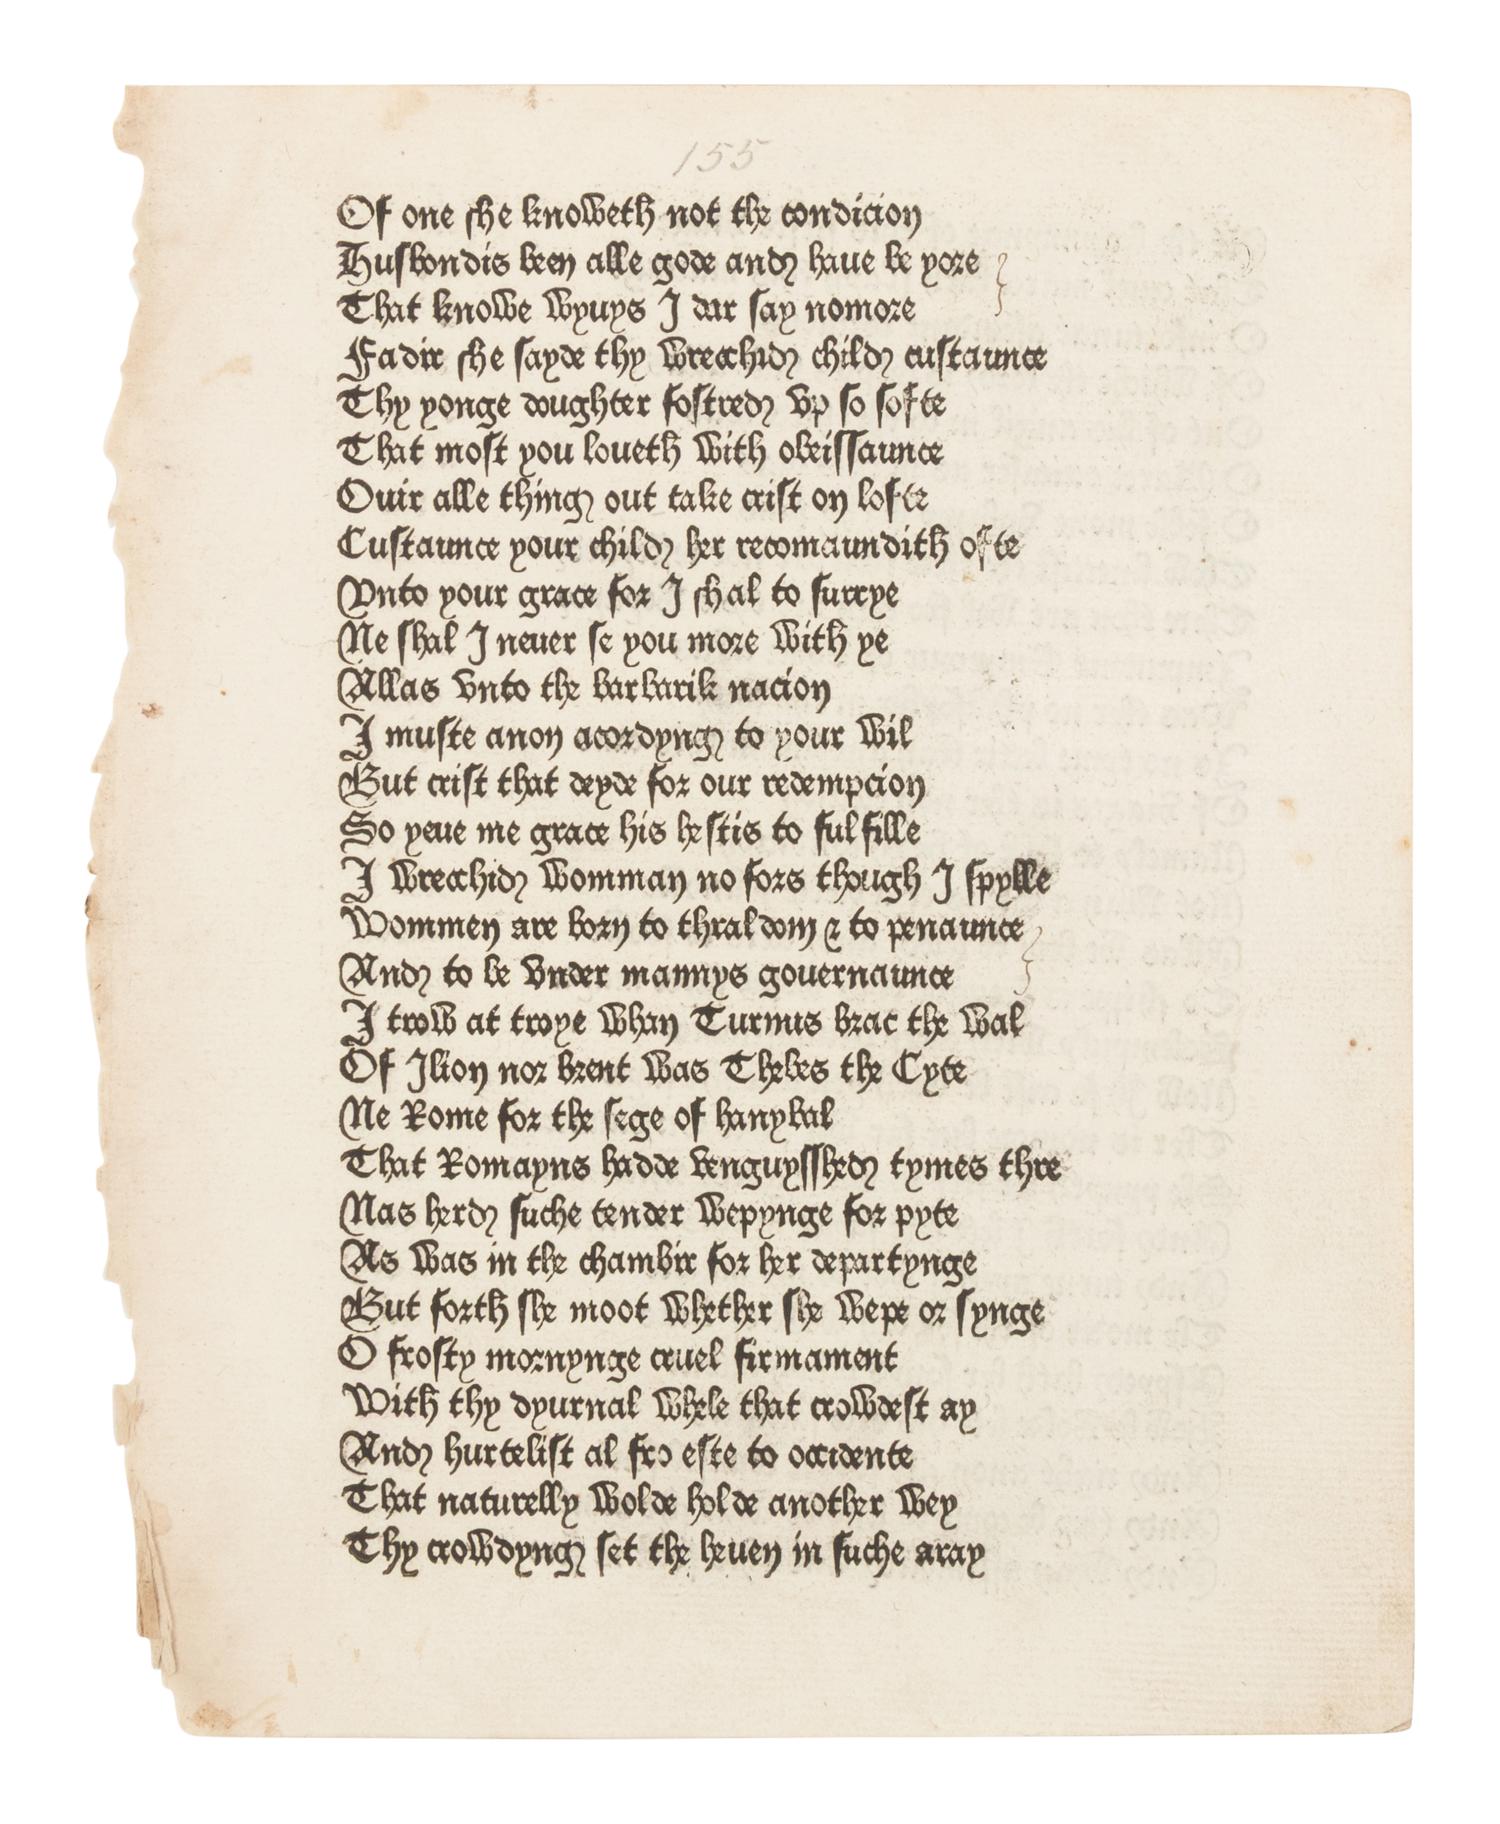 155
Of one she knoweth not the condicion
Husbondis been alle gode and haue be yore
That knowe wyuys I dar say nomore
Fadir she sayde thy wrecchid child custaunce
Thy yonge doughter fostred vp so softe
That most you loueth with obeissaunce
Ouir alle thing out take crist on lofte
Custaunce your child her recomaundith ofte
Vnto your grace for I shal to surrye
Ne shal I neuer se you more with ye
Allas vnto the barbarik nacion
I muste anon acordyng to your wil
But crist that deyde for our redempcion
So yeue me grace his hestis to fulfille
I wrecchid womman no fors though I spylle
Wommen are born to thraldom & to penaunce
And to be vnder mannys gouernaunce
I trow at troye whan Turnus brac the wal
Of Ilion nor brent was Thebes the Cyte
Ne Rome for the sege of hanybal
That Romayns hadde venguysshed tymes thre
Nas herd suche tender wepynge for pyte
As was in the chambir for her departynge
But forth she moot whether she wepe or synge
O frosty mornynge cruel firmament
With thy dyurnal whele that crowdest ay
And hurtelist al fro este to occidente
That naturelly wolde holde another wey
Thy crowdyng set the heuen in suche aray